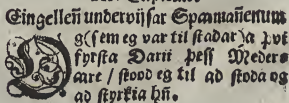 Eingelleñ underuijsar Spaamañenum
OG (sem eg var til stadar) a þvi
fyrsta Darii þess Meders
aare / stood eg til ad stoda og
ad styrkia hñ.